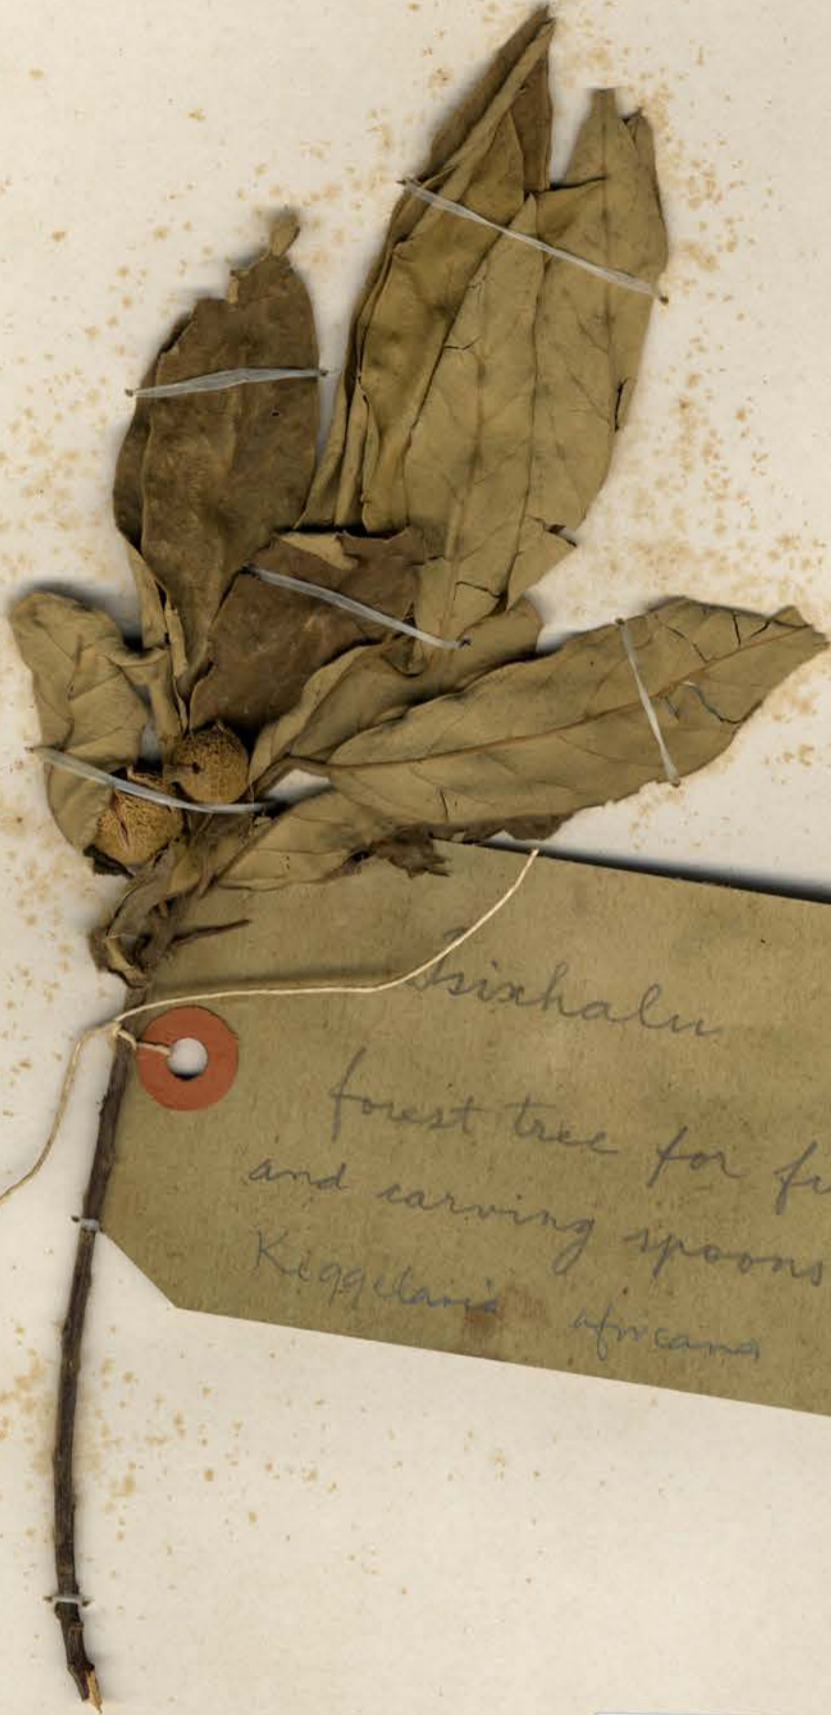 Isixhalu
forest tree for fu
and carving spoons
Kiggelaria africana